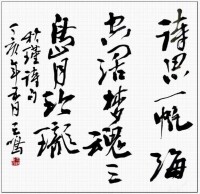 诗思一帆海
空阔梦魂三
岛月玲珑
秋瑾诗句
丁亥年五月